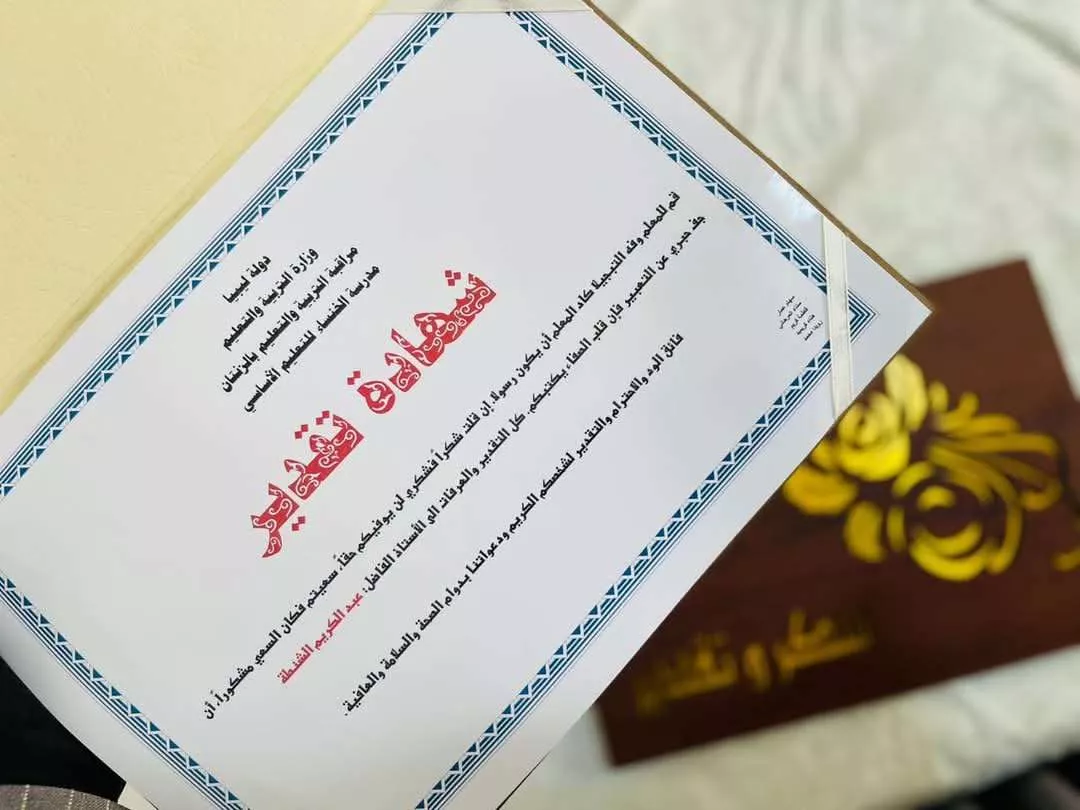 دولة ليبيا
وزارة التربية والتعليم
مراقبة التربية والتعليم بالزنتان
مدرسة الخنساء للتعليم الأساسي
شهادة تقدير
قم للمعلم وفه التبجيلا كاد المعلم أن يكون رسولا إن قلت شكراً فشكري لن يوفيكم حقاً، سعيتم فكان السعي مشكوراً، أن
جف حبري عن التعبير فإن قلب الصفاء يكتبكم، كل التقدير والعرفات الى الأستاذ الفاضل: عبد الكريم الشنطة
فائق الود والاحترام والتقدير لشخصكم الكريم ودعواتنا بدوام الصحة والسلامة والعافية.
شكر و تقدير